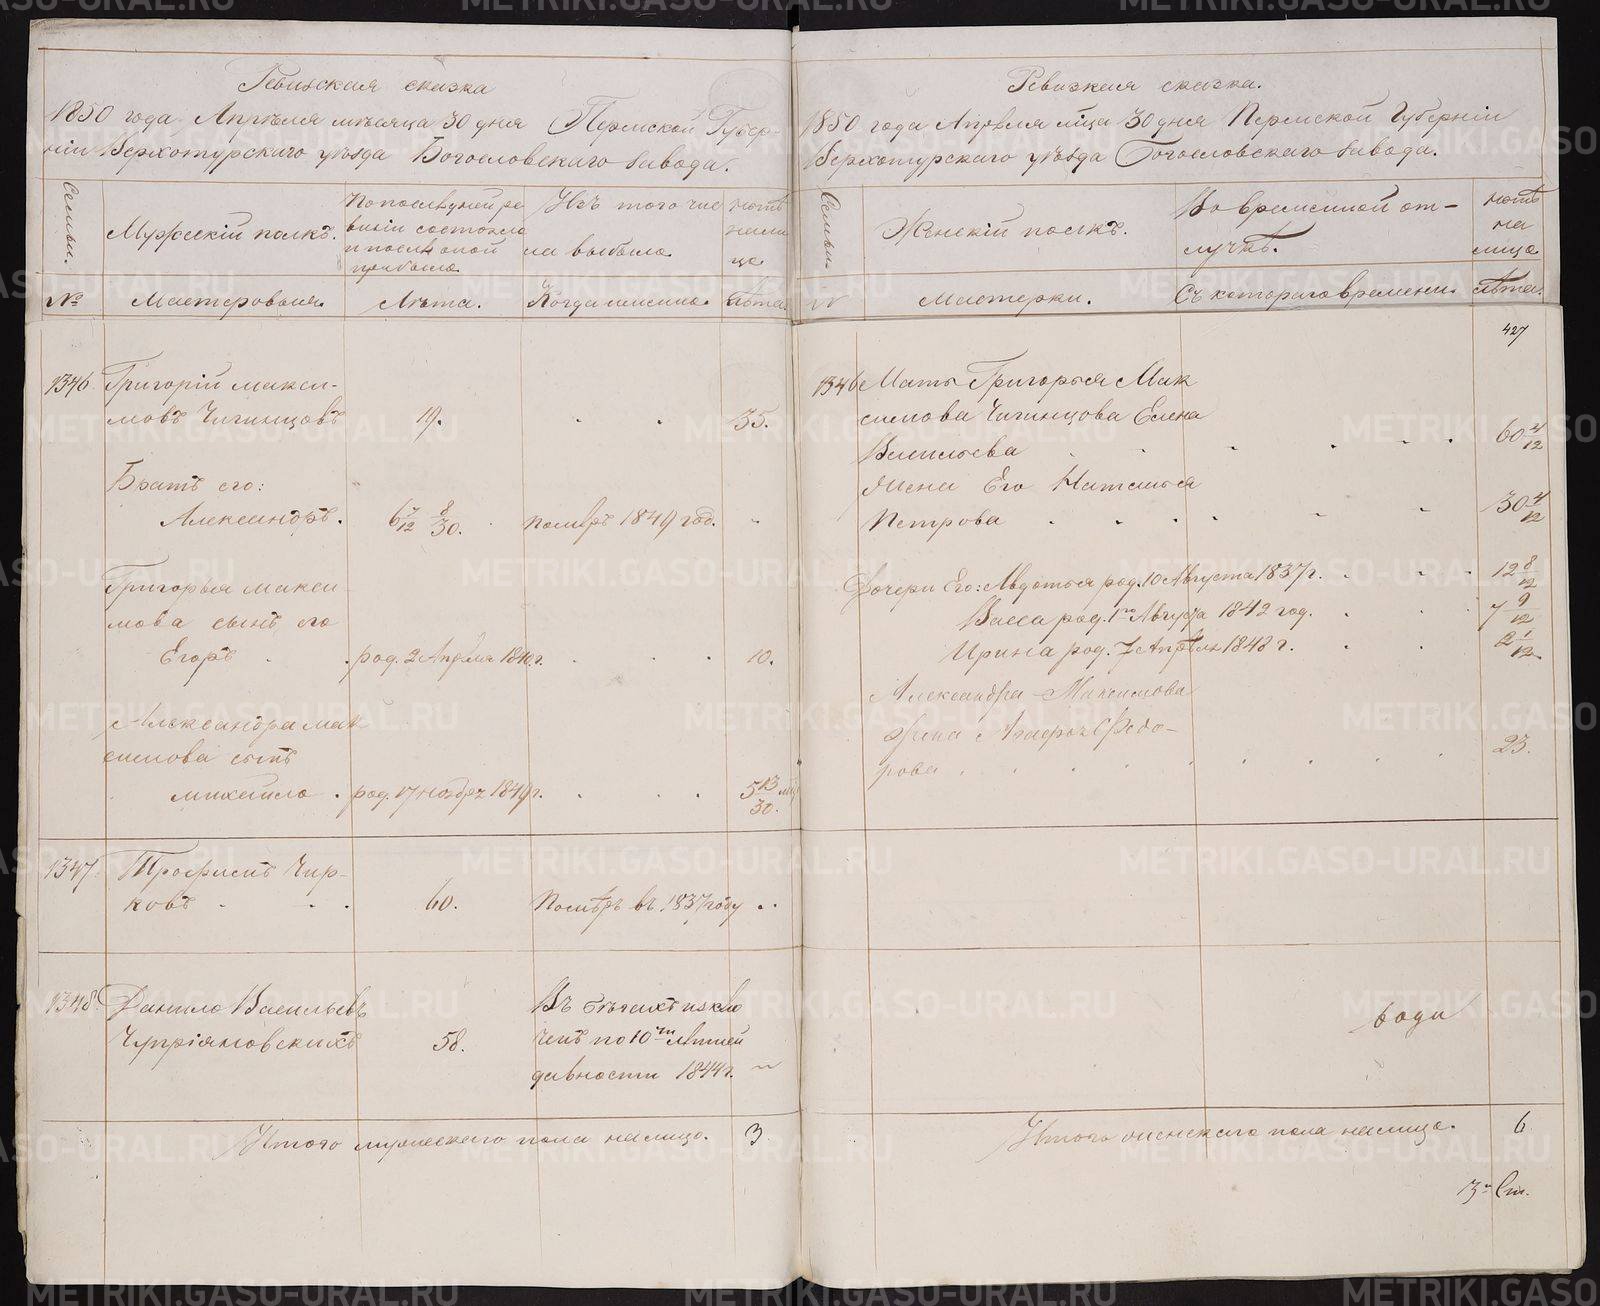 Ревизская сказка
1850 года Апреля месяца 30 дня Пермской Губер-
ніи Верхотурскаго уѣзда Богословскаго завода.
Семьи.
Мужескій полкъ.
По последней ре
визіи состояло
и после оной
прибыло
Изъ того чис
ла выбыло
нотѣ
нали
це
№
Мастеровыя.
Лѣта.
Когда имянно.
Лѣта.
1346.
Григорій Макси-
мовъ Чигинцовъ
19.
35.
Братъ его:
Александръ.
6 7/12 8/30.
помѣръ 1849 год.
Григорья Макси
мова сынъ его
Егоръ
род. 2 Апреля 1840 г.
10.
Александра Мак
симова сынъ
Михайло
род. 17 ноября 1849 г.
5 13/30.
1347.
Трофимъ Чир-
ковъ
60.
Помѣръ въ 1837 году
1348.
Данило Васильевъ
58.
Въ бѣгахъ исклю
ченъ по 10ти лѣтней
давности 1844 г.
Итого мужескаго пола налицо.
3
Ревизкая сказка.
1850 года Апреля мца 30 дня Пермской Губерніи
Верхотурскаго уѣзда Богословскаго завода.
Семьи.
Женскій полкъ.
Во временной от-
лучкѣ.
нотѣ
на
лицо
№
Мастерки.
Съ котораго времени.
Лѣта.
427
1346
Мать Григорья Мак
симова Чигинцова Елена
Васильева
60 4/12
Жена Его Наталья
Петрова
30 4/12
Дочери Его: Авдотья род. 10 Августа 1837 г.
12 8/12
Васса род. 1го Августа 1842 год.
7 9/12
Ирина род. 7 Апреля 1848 г.
2 1/12
Александра Максимова
Жена Агафья Ѳедо-
рова
23.
Итого женскаго пола налицо.
6